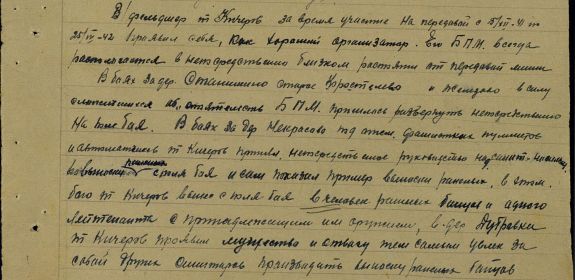 В/фельдшер т Кичеров за время участие на передовой с 5/VII-41 по
25/IV-42 проявил себя, как хороший организатор. Его Б.П.М. всегда
располагается в непосредственно близком растояни от передовой линии
В боях за дер. Старое Коростелево и в силу
Б.П.М. пришлось развернуть непосредственно
На поле боя. В боях за дер Некрасово под огнем, фашистких пулметов
и автоматов т Кичеров принял непосредственое руководство над
раненых с поля боя и сам показал пример выноски раненых, в этом
бою т Кичеров вынес с поля боя 8 человек раненых бойцов и одного
лейтенанта с принадлежащим им оружием, в дер Дубровки
т Кичеров проявил мужество и отвагу тем самым увлек за
собой других санитаров производить выноску раненых бойцов